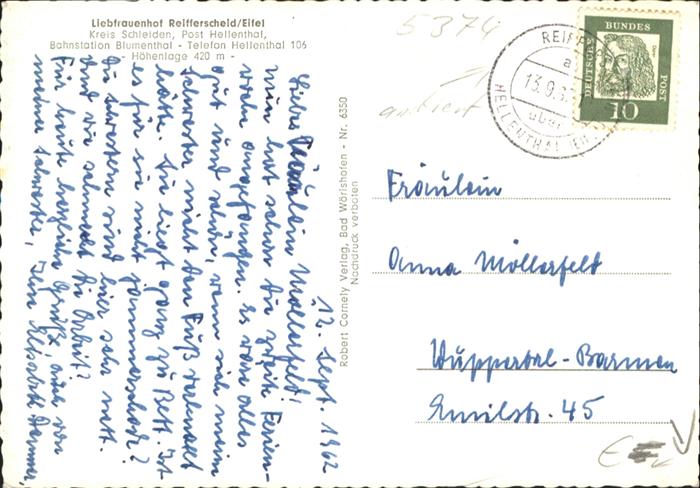 Liebfrauenhof Reifferscheid/Eifel
Kreis Schleiden, Post Hellenthal,
Bahnstation Blumenthal - Telefon Hellenthal 106
- Höhenlage 420 m -
12. Sept. 1962
Liebe Fräulein Möllerfeld!
Nun hat schon die zweite Ferien-
woche angefangen. Es wäre alles
gut und schön, wenn sich mein
Schwester nicht den Fuß verknackt
hätte. Sie liegt ganz zu Bett. Ist
es für sie nicht jammerschade?
Die Schwestern sind hier sehr nett.
Und wie schmeckt die Arbeit?
Für heute herzliche Grüße, auch von
meine Schwester, Ihre Elisabeth
Robert Cornely Verlag, Bad Wörishofen - Nr. 6350
Nachdruck verboten
5374
DEUTSCHE BUNDESPOST
10
REIFF
13.9.6
über
HELLENTHAL (EIF
Fräulein
Anna Möllerfeld
Wuppertal-Barmen
Emilstr. 45